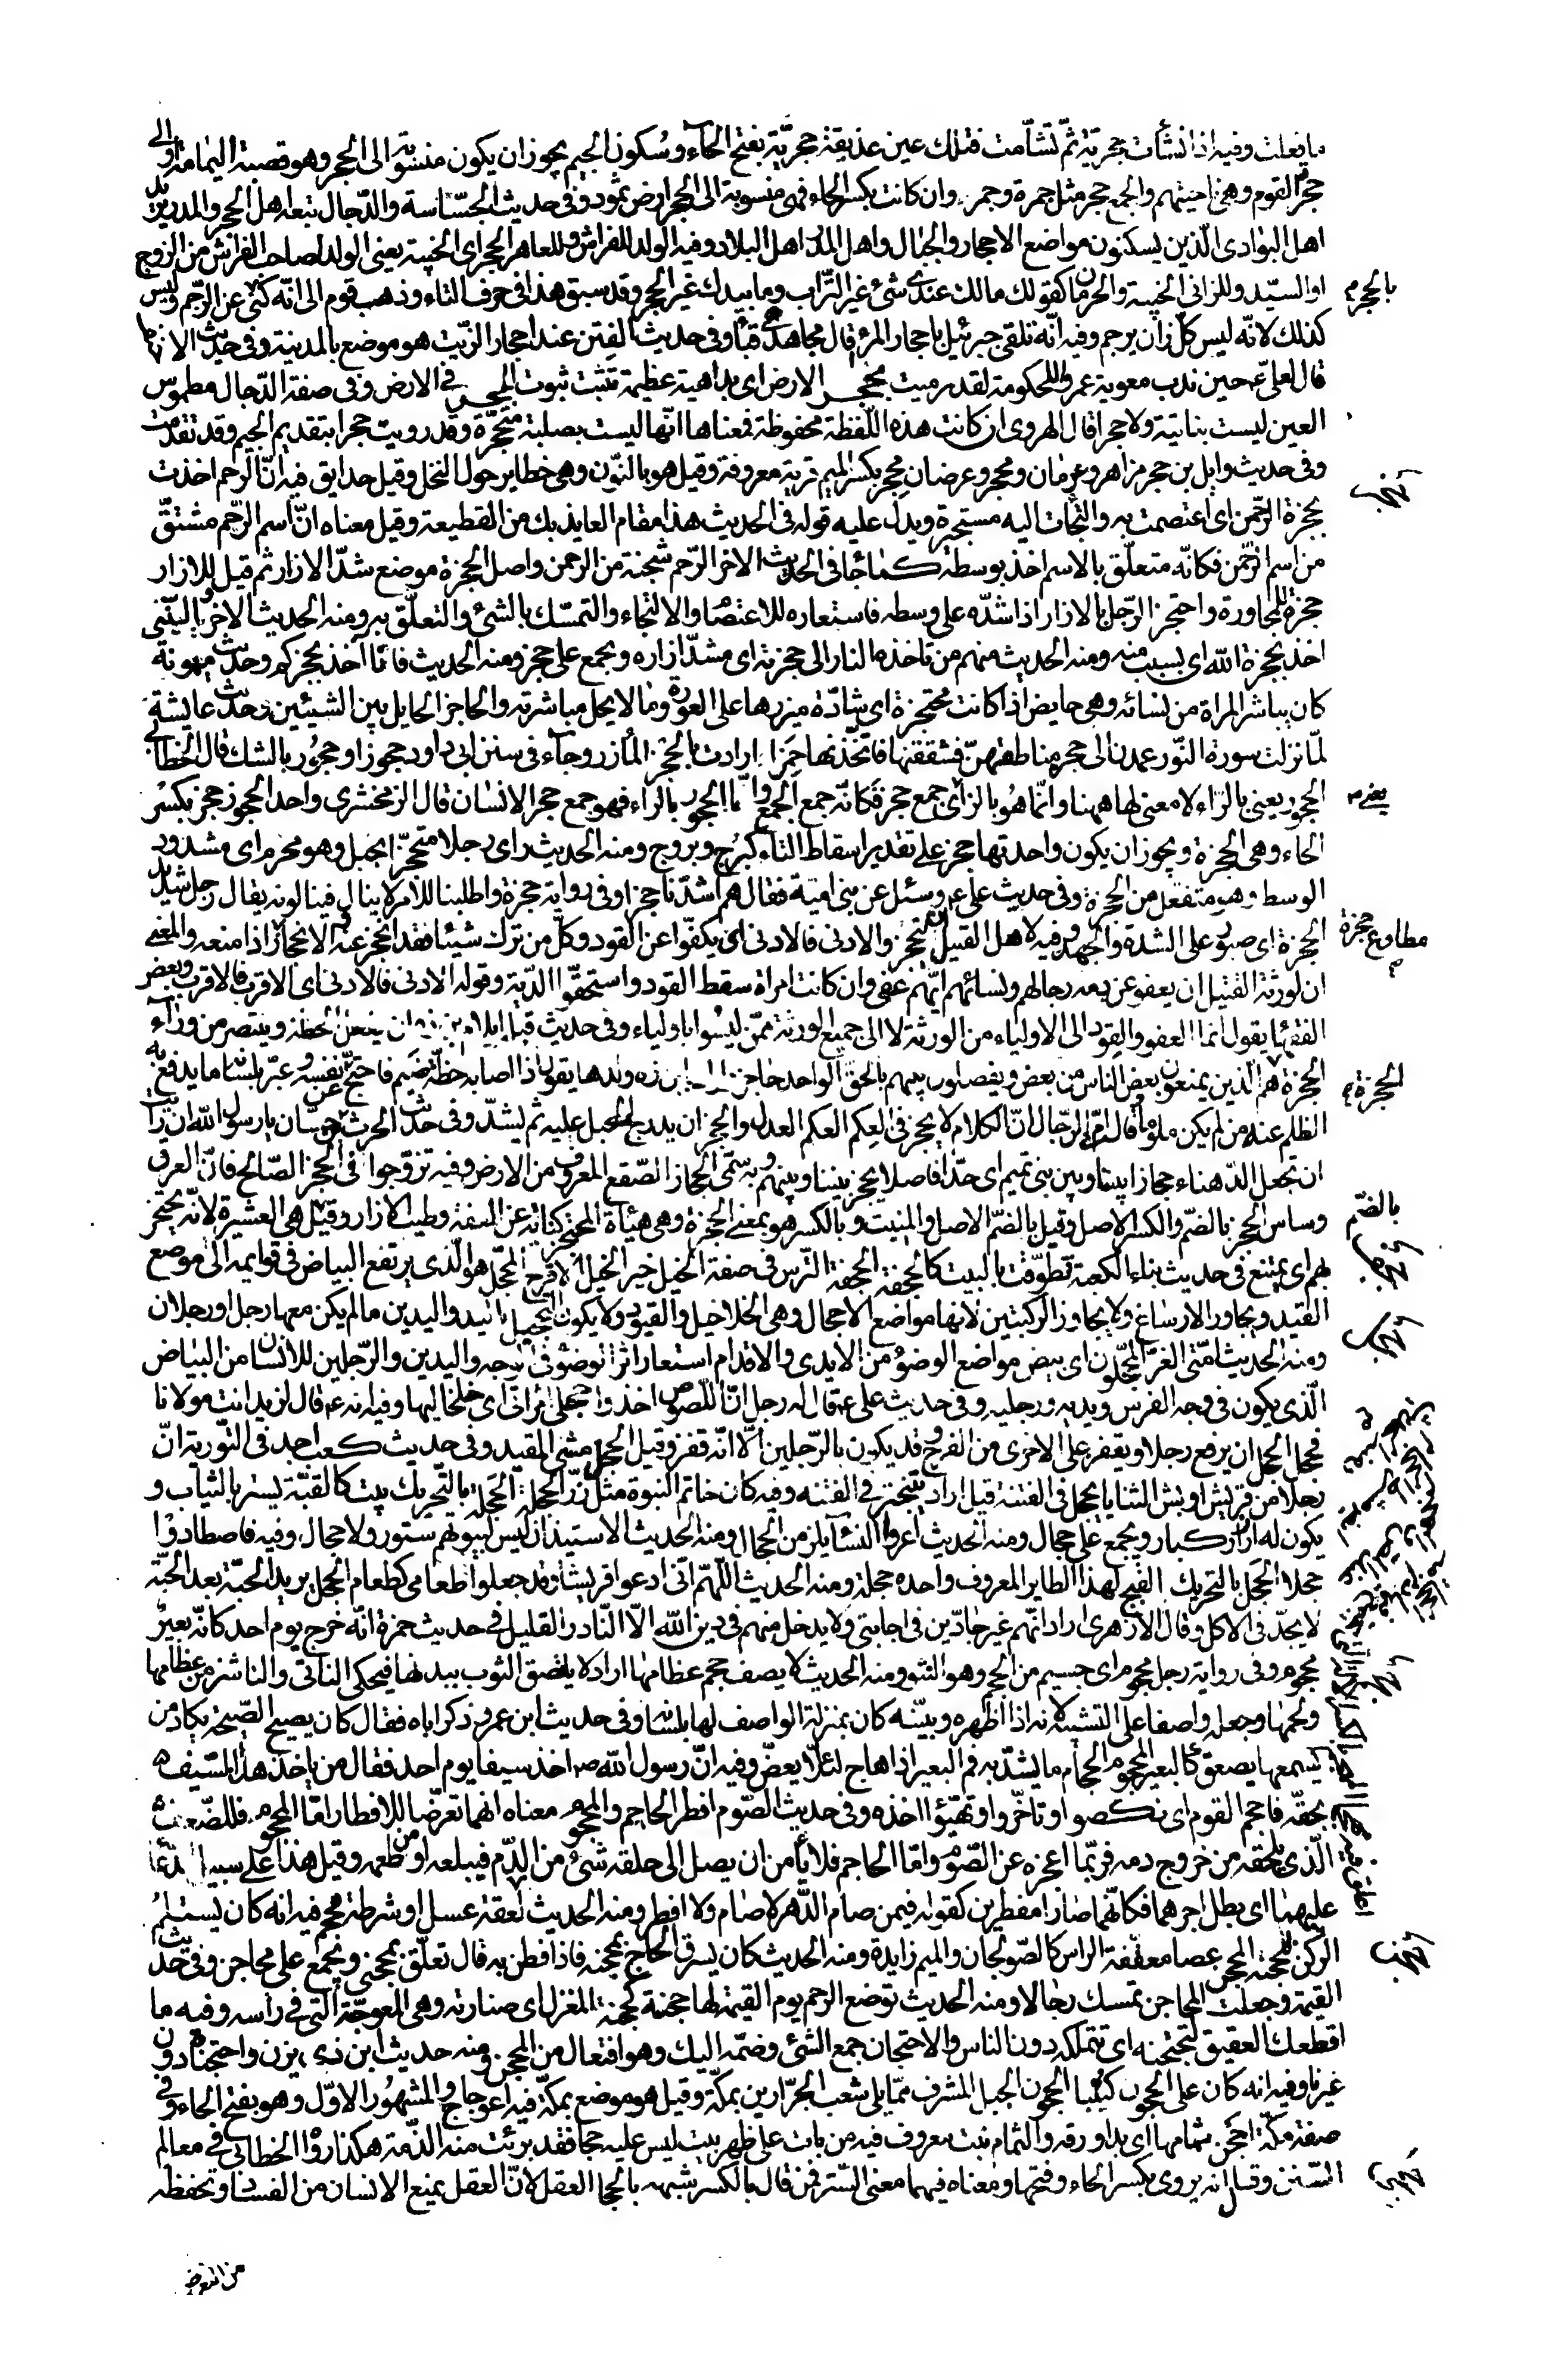 ما فعلت وفيه اذا نشأت حجرية ثمّ تشأمت فتلك عين غديقة حجريّة بفتح الحاء وسكون الجيم يجوز ان يكون منسوبة الى الحجر وهو قصبة اليمامة او الى
حجرة القوم وهى ناحيتهم والجمع حجر مثل جمرة وجمر وان كانت بكسر الحاء فهى منسوبة الى الحجر ارض ثمود وفى حديث الجسّاسة والدّجال تبعه اهل الحجر والمدر يريد
اهل البوادى الّذين يسكنون مواضع الاحجار والجبال واهل المدر اهل البلاد وفيه الولد للفراش وللعاهر الحجر اى الخيبة يعنى الولد لصاحب الفراش من الزوج
او السيّد وللزانى الخيبة والحرمان كقولك مالك عندى شئ غير التّراب وما بيدك غير الحجر وقد سبق هذا فى حرف التاء وذهب قوم الى انّه كنى بالحجر عن الرّجم وليس
كذلك لانّه ليس كلّ زان يرجم وفيه انّه تلقى جبرئيل باحجار المرء قال مجاهد هى قبا وفى حديث الفتن عند احجار الزّيت هو موضع بالمدينة وفى حديث الاحنف
قال لعلىّ ع حين ندب معوية عمروا للحكومة لقد رميت بحجر الارض اى بداهية عظيمة تثبت ثبوت الحجر فى الارض وفى صفة الدّجال مطموس
العين ليست بناتية ولا حجرا قال الهروى ان كانت هذه اللّفظة محفوظة فمعناها انّها ليست بصلبة متحجّرة وقد رويت جحرا بتقديم الجيم وقد تقدمت
وفى حديث وايل بن حجر مزاهر وعرمان ومحجر وعرضان محجر بكسر الميم قرية معروفة وقيل هو بالنّون وهى حظاير حول النخل وقيل حدايق فيه انّ الرحم اخذت
بحجزة الرّحمن اى اعتصمت به والتجات اليه مستجيرة ويدلّ عليه قوله فى الحديث هذا مقام العايذ بك من القطيعة وقيل معناه انّ اسم الرّحم مشتقّ
من اسم الرّحمن فكانّه متعلّق بالاسم اخذ بوسطه كما جا فى الحديث الاخر الرّحم شجنة من الرحمن واصل الحجزة موضع شدّ الازار ثم قيل للازار
حجزة للمجاورة واحتجز الرّجل بالازار اذا شدّه على وسطه فاستعاره للاعتصام والالتجاء والتمسّك بالشئ والتعلّق به ومنه الحديث الاخر يا ليتنى
اخذ بحجزة الله اى بسبب منه ومنه الحديث منهم من تاخذه النار الى حجزته اى مشدّ ازاره ويجمع على حجز ومنه الحديث فانا آخذ بحجزكم وحديث ميمونة
كان يباشر المراة من نسائه وهى حايض اذا كانت محتجزة اى شادّة ميزرها على العورة وما لا يحل مباشرته والحاجز الحايل بين الشيئين وحديث عايشة
لمّا نزلت سورة النّور عمدن الى حجز مناطقهنّ فشققنها فاتخذنها خمرا ارادت بالحجز المأزر وجاء فى سنن ابى داود حجوز او حجور بالشك قال الخطابى
الحجور يعنى بالرّاء لا معنى لها ههنا وانّما هو بالزاى يعنى جمع حجز فكانّه جمع الجمع وامّا الحجور بالراء فهو جمع حجر الانسان قال الزمخشرى واحد الحجوز حجز بكسر
الحاء وهى الحجزة ويجوز ان يكون واحدتها حجزة على تقدير اسقاط التاء كبرج وبروج ومنه الحديث راى رجلا متحجّزا بحبل وهو محرم اى مشدود
الوسط وهو متفعل من الحجزة وفى حديث على ع وسئل عن بنى اميّة فقال هم اشدّنا حجزا وفى رواية حجزة واطلبنا للامر لا ينال فينالونه يقال رجل شديد
الحجزة اى صبور على الشدة والجهد وفيه لاهل القتيل ان ينحجزوا الادنى فالادنى اى يكفّوا عن القود وكلّ من ترك شيئا فقد انحجز عنه والانحجاز مطاوع حجزه اذا منعه والمعنى
ان لورثة القتيل ان يعفو عن دمه رجالهم ونسائهم ايّهم عفى وان كانت امراة سقط القود واستحقّوا الدّية وقوله الادنى فالادنى اى الاقرب فالاقرب وبعض
الفقها يقول انما العفو والقود الى الاولياء من الورثة لا الى جميع الورثة ممّن ليسوا باولياء وفى حديث قيلة ايلام ابن ذه ان يفصل الخطة وينتصر من وراء
الحجزة الحجزة هم الّذين يمنعون بعض الناس من بعض ويفصلون بينهم بالحقّ الواحد حاجز اراد بابن ذه ولدها يقول اذا اصابه خطّة ضيم فاحتجّ عن نفسه وعبّر بلسانه ما يدفع به
الظلم عنه لم يكن ملوما وقالت امّ الرّحال انّ الكلام لا يحجز فى العكم العكم العدل والحجز ان يدرج الحبل عليه ثم يشدّ وفى حديث الحرث بن حسّان يا رسول الله ان رايت
ان تجعل الدّهناء حجازا بيننا وبين بنى تميم اى حدّا فاصلا يحجز بيننا وبينهم وبه سمّى الحجاز الصّقع المعروف من الارض وفيه تزوّجوا فى الحجز الصّالح فانّ العرق
دساس الحجز بالضم والكسر الاصل وقيل بالضمّ الاصل والمنبت وبالكسر هو بمعنى الحجزة وهى هيئاة المحتجز كناية عن العفة وطيب الازار وقيل هى العشيرة لانّه يحتجز
بهم اى يمتنع فى حديث بناء الكعبة تطوّقت بالبيت كالحجفة الحجفة التّرس فى صفة الخيل خير الخيل الاقرح المحجّل هو الّذى يرتفع البياض فى قوايمه الى موضع
القيد ويجاوز الارساغ ولا يجاوز الركبتين لانها مواضع الاحجال وهى الخلاخيل والقيود ولا يكون التحجيل باليد واليدين مالم يكن معها رجل او رجلان
ومنه الحديث امّتى الغرّ المحجّلون اى بيض مواضع الوضوء من الايدى والاقدام استعار اثر الوضوء فى الوجه واليدين والرّجلين للانسان من البياض
الّذى يكون فى وجه الفرس ويديه ورجليه وفى حديث على ع قال له رجل انّ اللّصوص اخذوا حجلى امراتى اى خلخاليها وفيه انه ع قال لزيد انت مولانا
فحجل الحجل ان يرفع رجلا ويقفز على الاخرى من الفرح وقد يكون بالرّجلين الّا انّه قفز وقيل الحجل مشى المقيد وفى حديث كعب اجد فى التّورية انّ
رجلا من قريش اوبش الثنايا يحجل فى الفتنة قيل اراد يتبختر فى الفتنه وفيه كان خاتم النبوة مثل زرّ الحجلة الحجلة بالتّحريك بيت كالقبّة يستر بالثياب و
يكون له ازرار كبار ويجمع على حجال ومنه الحديث اعروا النّسآ يلزمن الحجال ومنه الحديث الاستيذان ليس لبيوتهم ستور ولا حجال وفيه فاصطادوا
حجلا الحجل بالتحريك القبج لهذا الطاير المعروف واحده حجلة ومنه الحديث اللّهمّ انّى ادعوا قريشا وقد جعلوا طعامى كطعام الحجل يريد انّه ياكل الحبّة بعد الحبّة
لا يجدّ فى الاكل وقال الازهرى اراد انّهم غير جادّين فى اجابتى ولا يدخل منهم فى دين الله الّا النّادر القليل فى حديث حمزة انّه خرج يوم احد كانّه بعير
محجوم وفى رواية رجل محجوم اى جسيم من الحجم وهو النتو ومنه الحديث لا يصف حجم عظامها اراد لا يلتصق الثوب ببدنها فيحكى الناتى والناشز من عظامها
ولحمها وجعله واصفا على التشبيه لانه اذا اظهره وبيّنه كان بمنزلة الواصف لها بلسانه وفى حديث ابن عمر وذكر اباه فقال كان يصيح الصّيحة يكاد من
يسمعها يصعق كالبعير المحجوم الحجام ما يشدّ به فم البعير اذا هاج لئلّا يعضّ وفيه انّ رسول الله ص اخذ سيفا يوم احد فقال من ياخذ هذا السّيف
بحقّه فاحجم القوم اى نكصوا وتاخّروا وتهيّؤا اخذه وفى حديث الصّوم افطر الحاجم والمحجوم معناه انهما تعرّضا للافطار امّا المحجوم فللضّعف
الّذى يلحقه من خروج دمه فربّما اعجزه عن الصّوم وامّا الحاجم فلا يأمن ان يصل الى حلقه شئ من الدّم فيبلعه او من طعمه وقيل هذا على سبيل الدّعا
عليهما اى بطل اجرهما فكانّهما صارا مفطرين كقوله فيمن صام الدّهر لا صام ولا افطر ومنه الحديث لعقة عسل او شرطة محجم فيه انه كان يستلم
الركن بمحجنه المحجن عصا معقّفة الراس كالصّولجان والميم زايدة ومنه الحديث كان يسرق الحاجّ بمحجنه فاذا فطن به قال تعلّق بمحجنى ويجمع على محاجن وفى حديث
القيمة وجعلت المحاجن تمسك رجالا ومنه الحديث توضع الرحم يوم القيمة لها حجنة كحجنة المغزل اى صنارته وهى المعوجّة التى فى راسه وفيه ما
اقطعك العقيق لتحتجنه اى تتملكه دون الناس والاحتجان جمع الشئ وضمّه اليك وهو افتعال من المحجن ومنه حديث ابن ذى يزن واحتجناه دون
غيرنا وفيه انه كان على الحجون كئيبا الحجون الجبل المشرف ممّا يلى شعب الجزّارين بمكّة وقيل هو موضع بمكّة فيه اعوجاج والمشهور الاوّل وهو بفتح الحاء وفى
صفة مكّة احجن ثمامها اى بدا ورقه والثمام نبت معروف فيه من بات على ظهر بيت ليس عليه حجا فقد برئت منه الذّمة هكذا رواه الخطابى فى معالم
السّنن وقال انه يروى بكسر الحاء وفتحها ومعناه فيهما معنى السّتر فمن قال بالكسر يشبهه بالحجا العقل لانّ العقل يمنع الانسان من الفساد ويحفظه
من التعرض